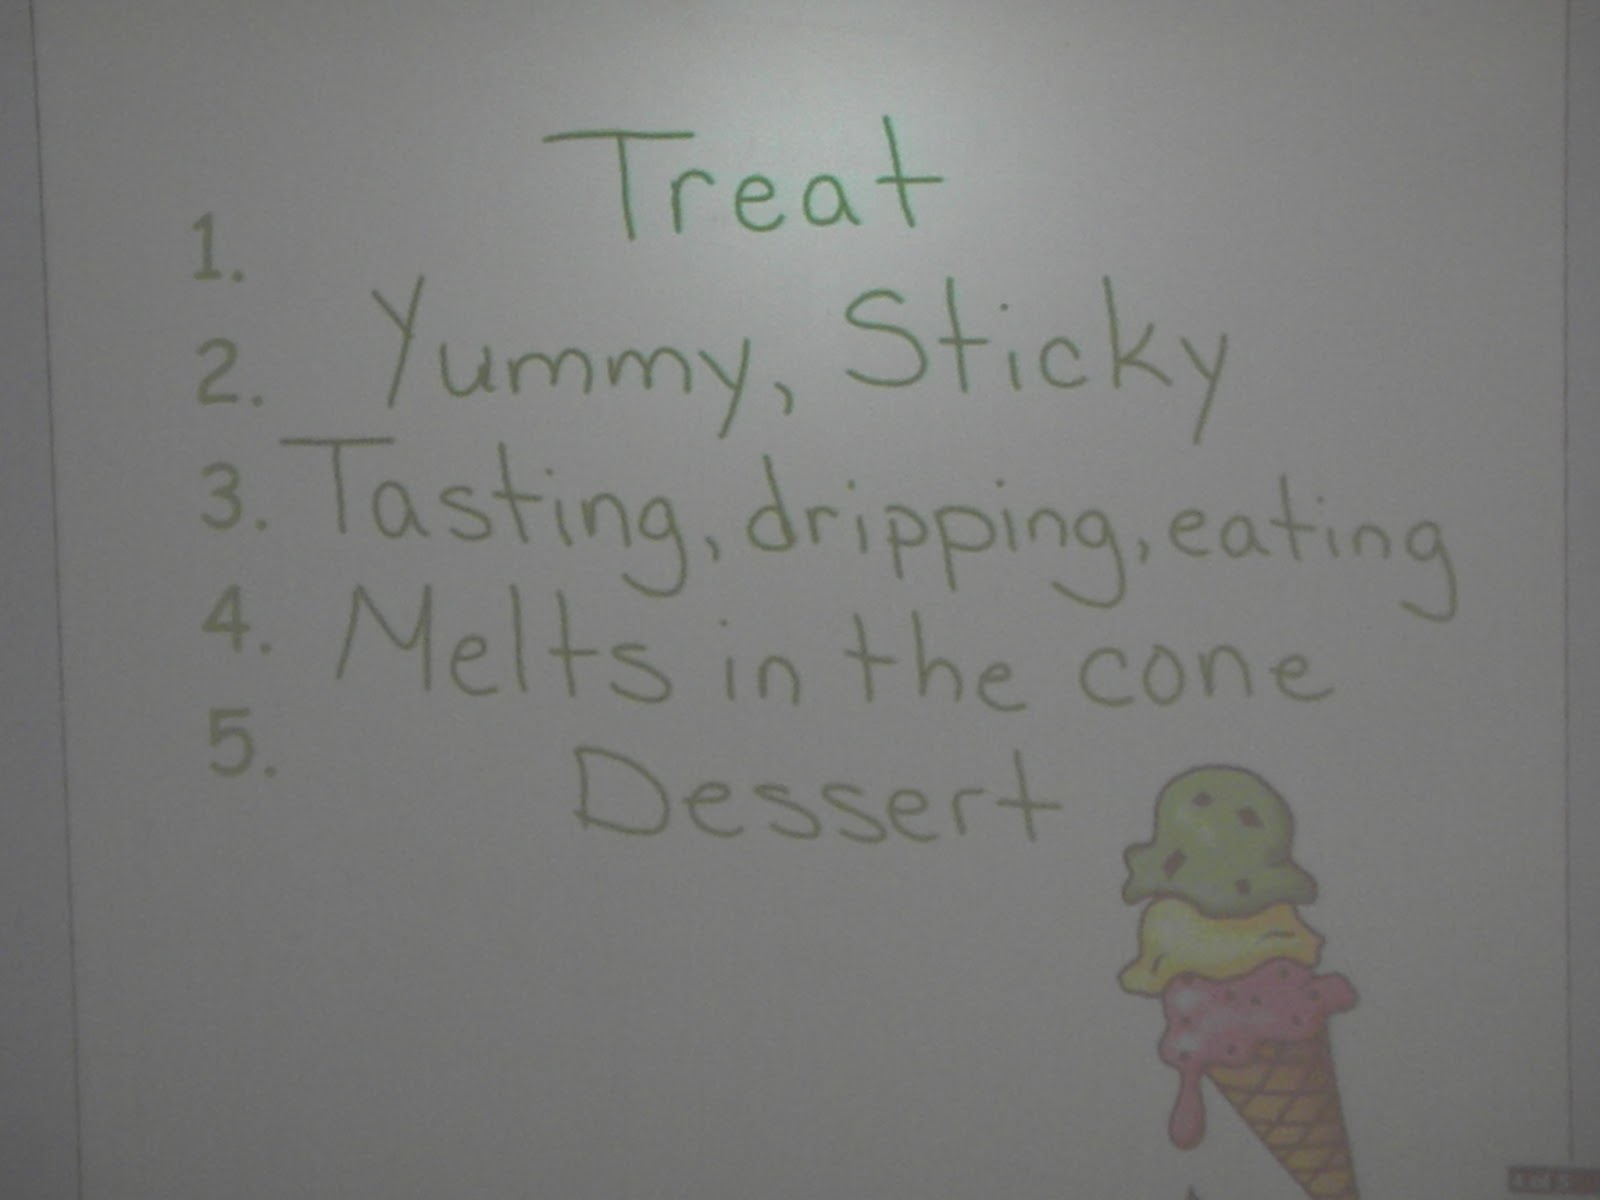 1. Treat
2. Yummy, Sticky
3. Tasting, dripping, eating
4. Melts in the cone
5. Dessert